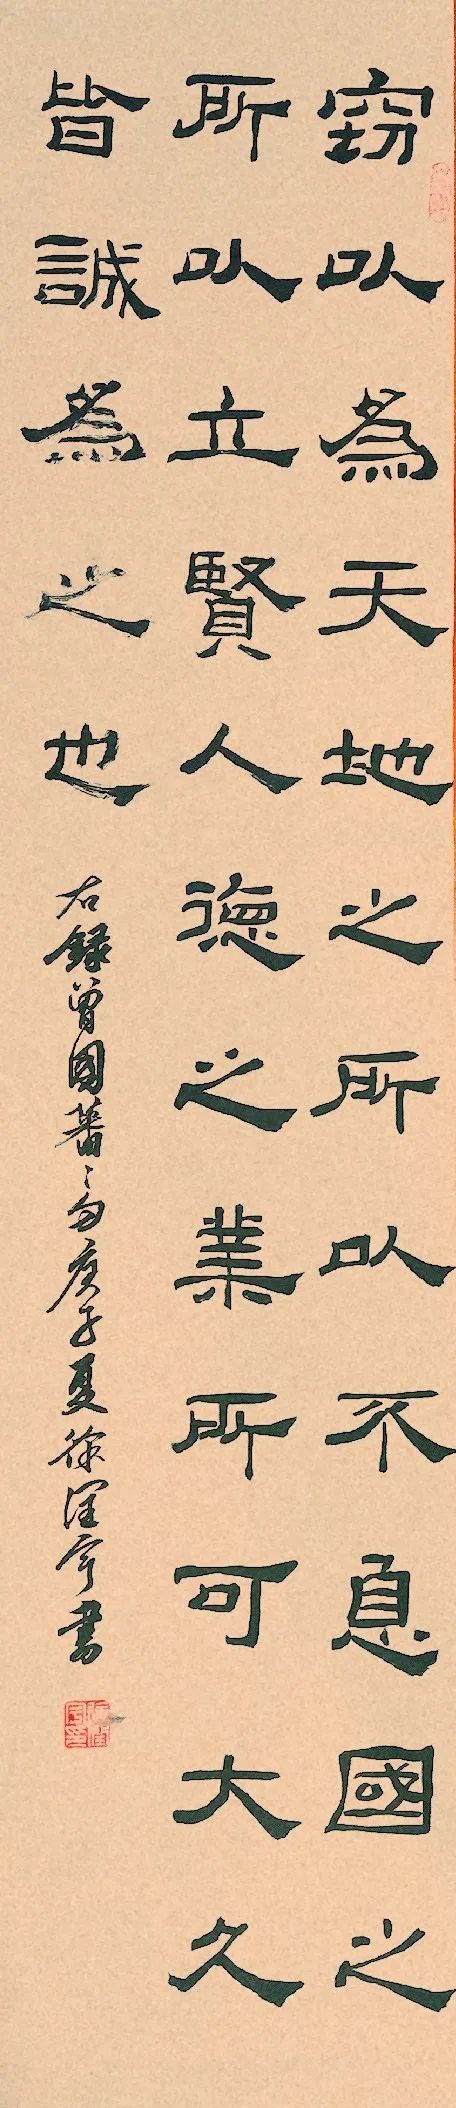 窃以為天地之所以不息國之
所以立賢人德之業所可大久
皆誠為之也
右錄曾國藩之句庚子夏徐書